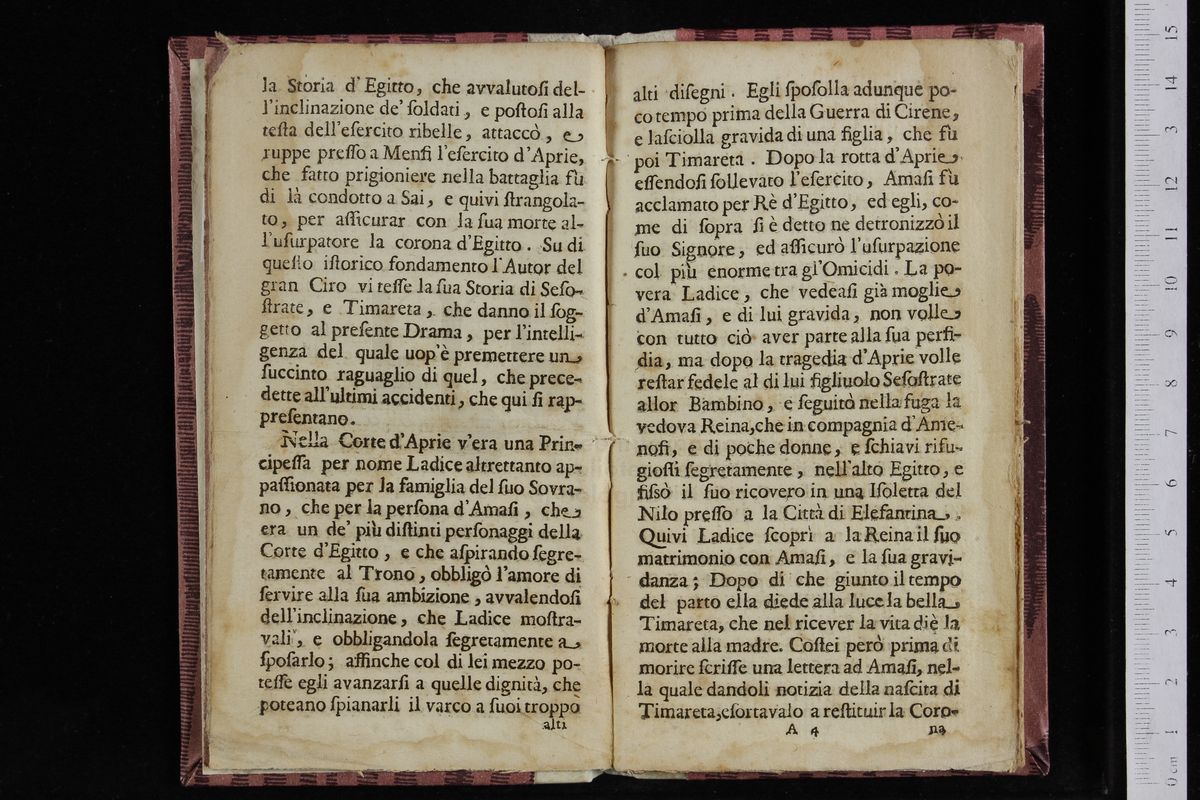 la Storia d'Egitto, che avvalutoſi del-
l'inclinazione de' ſoldati, e poſtoſi alla
teſta dell'eſercito ribelle, attaccò, e
ruppe preſſo a Menfi l'eſercito d'Aprie,
che fatto prigioniere nella battaglia fù
di là condotto a Sai, e quivi ſtrangola-
to, per aſſicurar con la ſua morte al-
l'uſurpatore la corona d'Egitto. Su di
queſto iſtorico fondamento l'Autor del
gran Ciro vi teſſe la ſua Storia di Seſo-
ſtrate, e Timareta, che danno il ſog-
getto al preſente Drama, per l'intelli-
genza del quale uop'è premettere un
ſuccinto raguaglio di quel, che prece-
dette all'ultimi accidenti, che qui ſi rap-
preſentano.
Nella Corte d'Aprie v'era una Prin-
cipeſſa per nome Ladice altrettanto ap-
paſſionata per la famiglia del ſuo Sovra-
no, che per la perſona d'Amaſi, che
era un de' più diſtinti perſonaggi della
Corte d'Egitto, e che aſpirando ſegre-
tamente al Trono, obbligò l'amore di
ſervire alla ſua ambizione, avvalendoſi
dell'inclinazione, che Ladice moſtra-
vali, e obbligandola ſegretamente a
ſpoſarlo; affinche col di lei mezzo po-
teſſe egli avanzarſi a quelle dignità, che
poteano ſpianarli il varco a ſuoi troppo
alti
alti diſegni. Egli ſpoſolla adunque po-
co tempo prima della Guerra di Cirene,
e laſciolla gravida di una figlia, che fù
poi Timareta. Dopo la rotta d'Aprie
eſſendoſi ſollevato l'eſercito, Amaſi fù
acclamato per Rè d'Egitto, ed egli, co-
me di ſopra ſi è detto ne detronizzò il
ſuo Signore, ed aſſicurò l'uſurpazione
col più enorme tra gl'Omicidi. La po-
vera Ladice, che vedeaſi già moglie
d'Amaſi, e di lui gravida, non volle
con tutto ciò aver parte alla ſua perfi-
dia, ma dopo la tragedia d'Aprie volle
reſtar fedele al di lui figliuolo Seſoſtrate
allor Bambino, e ſeguitò nella fuga la
vedova Reina,che in compagnia d'Ame-
nofi, e di poche donne, e ſchiavi rifu-
gioſſi ſegretamente, nell'alto Egitto, e
fiſsò il ſuo ricovero in una Iſoletta del
Nilo preſſo a la Città di Elefantina.
Quivi Ladice ſcoprì a la Reina il ſuo
matrimonio con Amaſi, e la ſua gravi-
danza; Dopo di che giunto il tempo
del parto ella diede alla luce la bella
Timareta, che nel ricever la vita diè la
morte alla madre. Coſtei però prima di
morire ſcriſſe una lettera ad Amaſi, nel-
la quale dandoli notizia della naſcita di
Timareta,eſortavalo a reſtituir la Coro-
A 4 na
0 cm 1 2 3 4 5 6 7 8 9 10 11 12 3 14 15